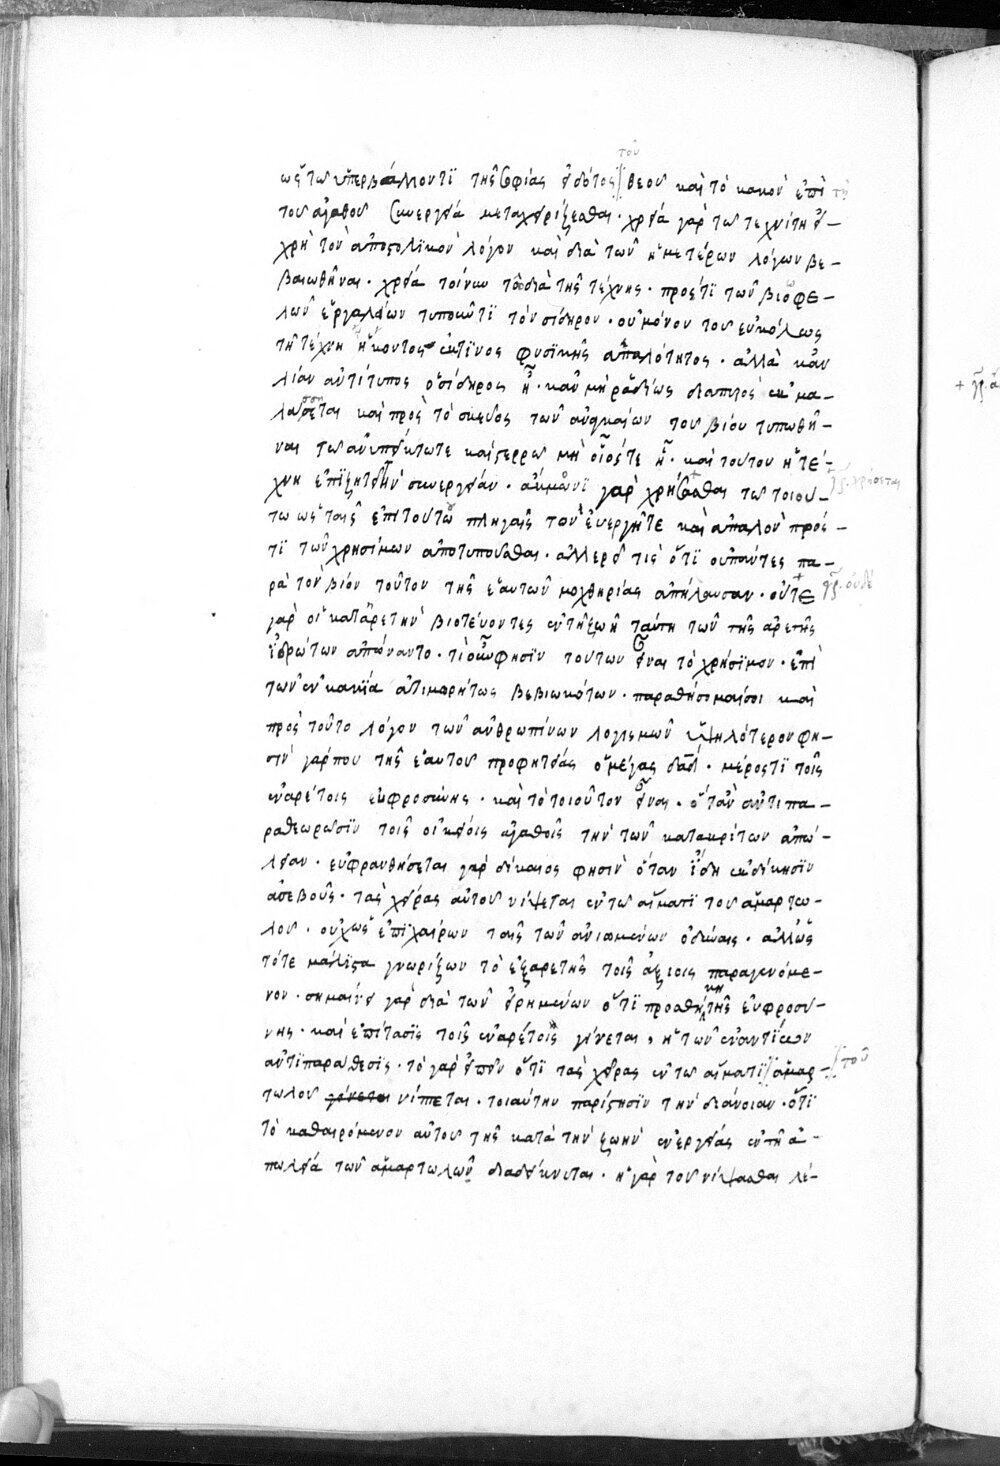 τοῦ
ὡς τῷ ὑπερβάλλοντι τῆς σοφίας εἰδότος θεοῦ καὶ τὸ κακὸν ἐπὶ τῇ
τοῦ ἀγαθοῦ συνεργείᾳ μεταχειρίζεσθαι · χρεία γὰρ τῷ τεχνίτῃ εἰ-
χρὴ τὸν ἀποστολικὸν λόγον καὶ διὰ τῶν ἡμετέρων λόγων βε-
βαιωθῆναι · χρεία τοίνυν τῷ διὰ τῆς τέχνης · πρός τι τῶν βιωφε-
λῶν ἐργαλείων τυποῦντι τὸν σίδηρον · οὐ μόνον τοῦ εὐκόλως
τῇ τέχνῃ εἴκοντος ἔκ τινος φυσικῆς ἁπαλότητος · ἀλλὰ κἂν
λίαν ἀντίτυπος ὁ σίδηρος ᾖ · κἂν μὴ ῥαδίως διαπυρος ἐκμα-
λάσσεται καὶ πρὸς τὸ σκεῦος τῶν ἀναγκαίων τοῦ βίου τυπωθῆ-
ναι τῷ ἀνυπείκτῳ τε καὶ στερρῷ μὴ οἷός τε ᾖ · καὶ τούτου ἡ τέ-
χνη ἐπιζητεῖ τὴν συνεργείαν · ἄκμωνι γὰρ χρήσασθαι τῷ τοιού- γρ. χρήσεται
τῳ ὡς ταῖς ἐπὶ τούτῳ πληγαῖς τὸν ἐνεργῆ τε καὶ ἁπαλὸν πρός
τι τῶν χρησίμων ἀποτυποῦσθαι · ἀλλ' ἐρεῖ τις ὅτι οὐ πάντες πα-
ρὰ τὸν βίον τοῦτον τῆς ἑαυτῶν μοχθηρίας ἀπήλαυσαν · οὔτε γρ. οὐδὲ
γὰρ οἱ κατ' ἀρετὴν βιοτεύοντες ἐν τῇ ζωῇ ταύτῃ τῶν τῆς ἀρετῆς
ἱδρώτων ἀπώναντο · τί οὖν φησιν τούτων εἶναι τὸ χρήσιμον · ἐπὶ
τῶν ἐν κακίᾳ ἀτιμωρήτως βεβιωκότων · παραθήσομαί σοι καὶ
πρὸς τοῦτο λόγον τῶν ἀνθρωπίνων λογισμῶν ὑψηλότερον φη-
σὶν γάρ που τῆς ἑαυτοῦ προφητείας ὁ μέγας δαδ · μέρος τι τοῖς
ἐναρέτοις εὐφροσύνης · καὶ τὸ τοιοῦτον εἶναι · ὅταν ἀντιπα-
ραθεωρῶσιν τοῖς οἰκείοις ἀγαθοῖς τὴν τῶν κατακρίτων ἀπώ-
λειαν · εὐφρανθήσεται γὰρ δίκαιος φησὶν ὅταν ἴδῃ ἐκδίκησιν
ἀσεβοῦς · τὰς χεῖρας αὐτοῦ νίψεται ἐν τῷ αἵματι τοῦ ἁμαρτω-
λοῦ · οὐχ ὡς ἐπιχαίρων ταῖς τῶν ἀνιωμένων ὀδύναις · ἀλλ' ὡς
τότε μάλιστα γνωρίζων τὸ ἐξ ἀρετῆς τοῖς ἀξίοις παραγενόμε-
νον · σημαίνει γὰρ διὰ τῶν εἰρημένων ὅτι προσθήκη τῆς εὐφροσύ-
νης · καὶ ἐπίτασις τοῖς ἐναρέτοις γίνεται, ἡ τῶν ἐναντίων
ἀντιπαράθεσις · τὸ γὰρ εἰπεῖν ὅτι τὰς χεῖρας ἐν τῷ αἵματι ἁμαρ- τοῦ
τωλοῦ γίνεται νίπτεται · τοιαύτην παρίστησιν τὴν διάνοιαν · ὅτι
τὸ καθαιρόμενον αὐτοῦ τῆς κατὰ τὴν ζωὴν ἐνεργείας ἐν τῇ ἀ-
πωλείᾳ τῶν ἁμαρτωλῶν διαδείκνυται · ἡ γὰρ τοῦ νίψασθαι λέ-